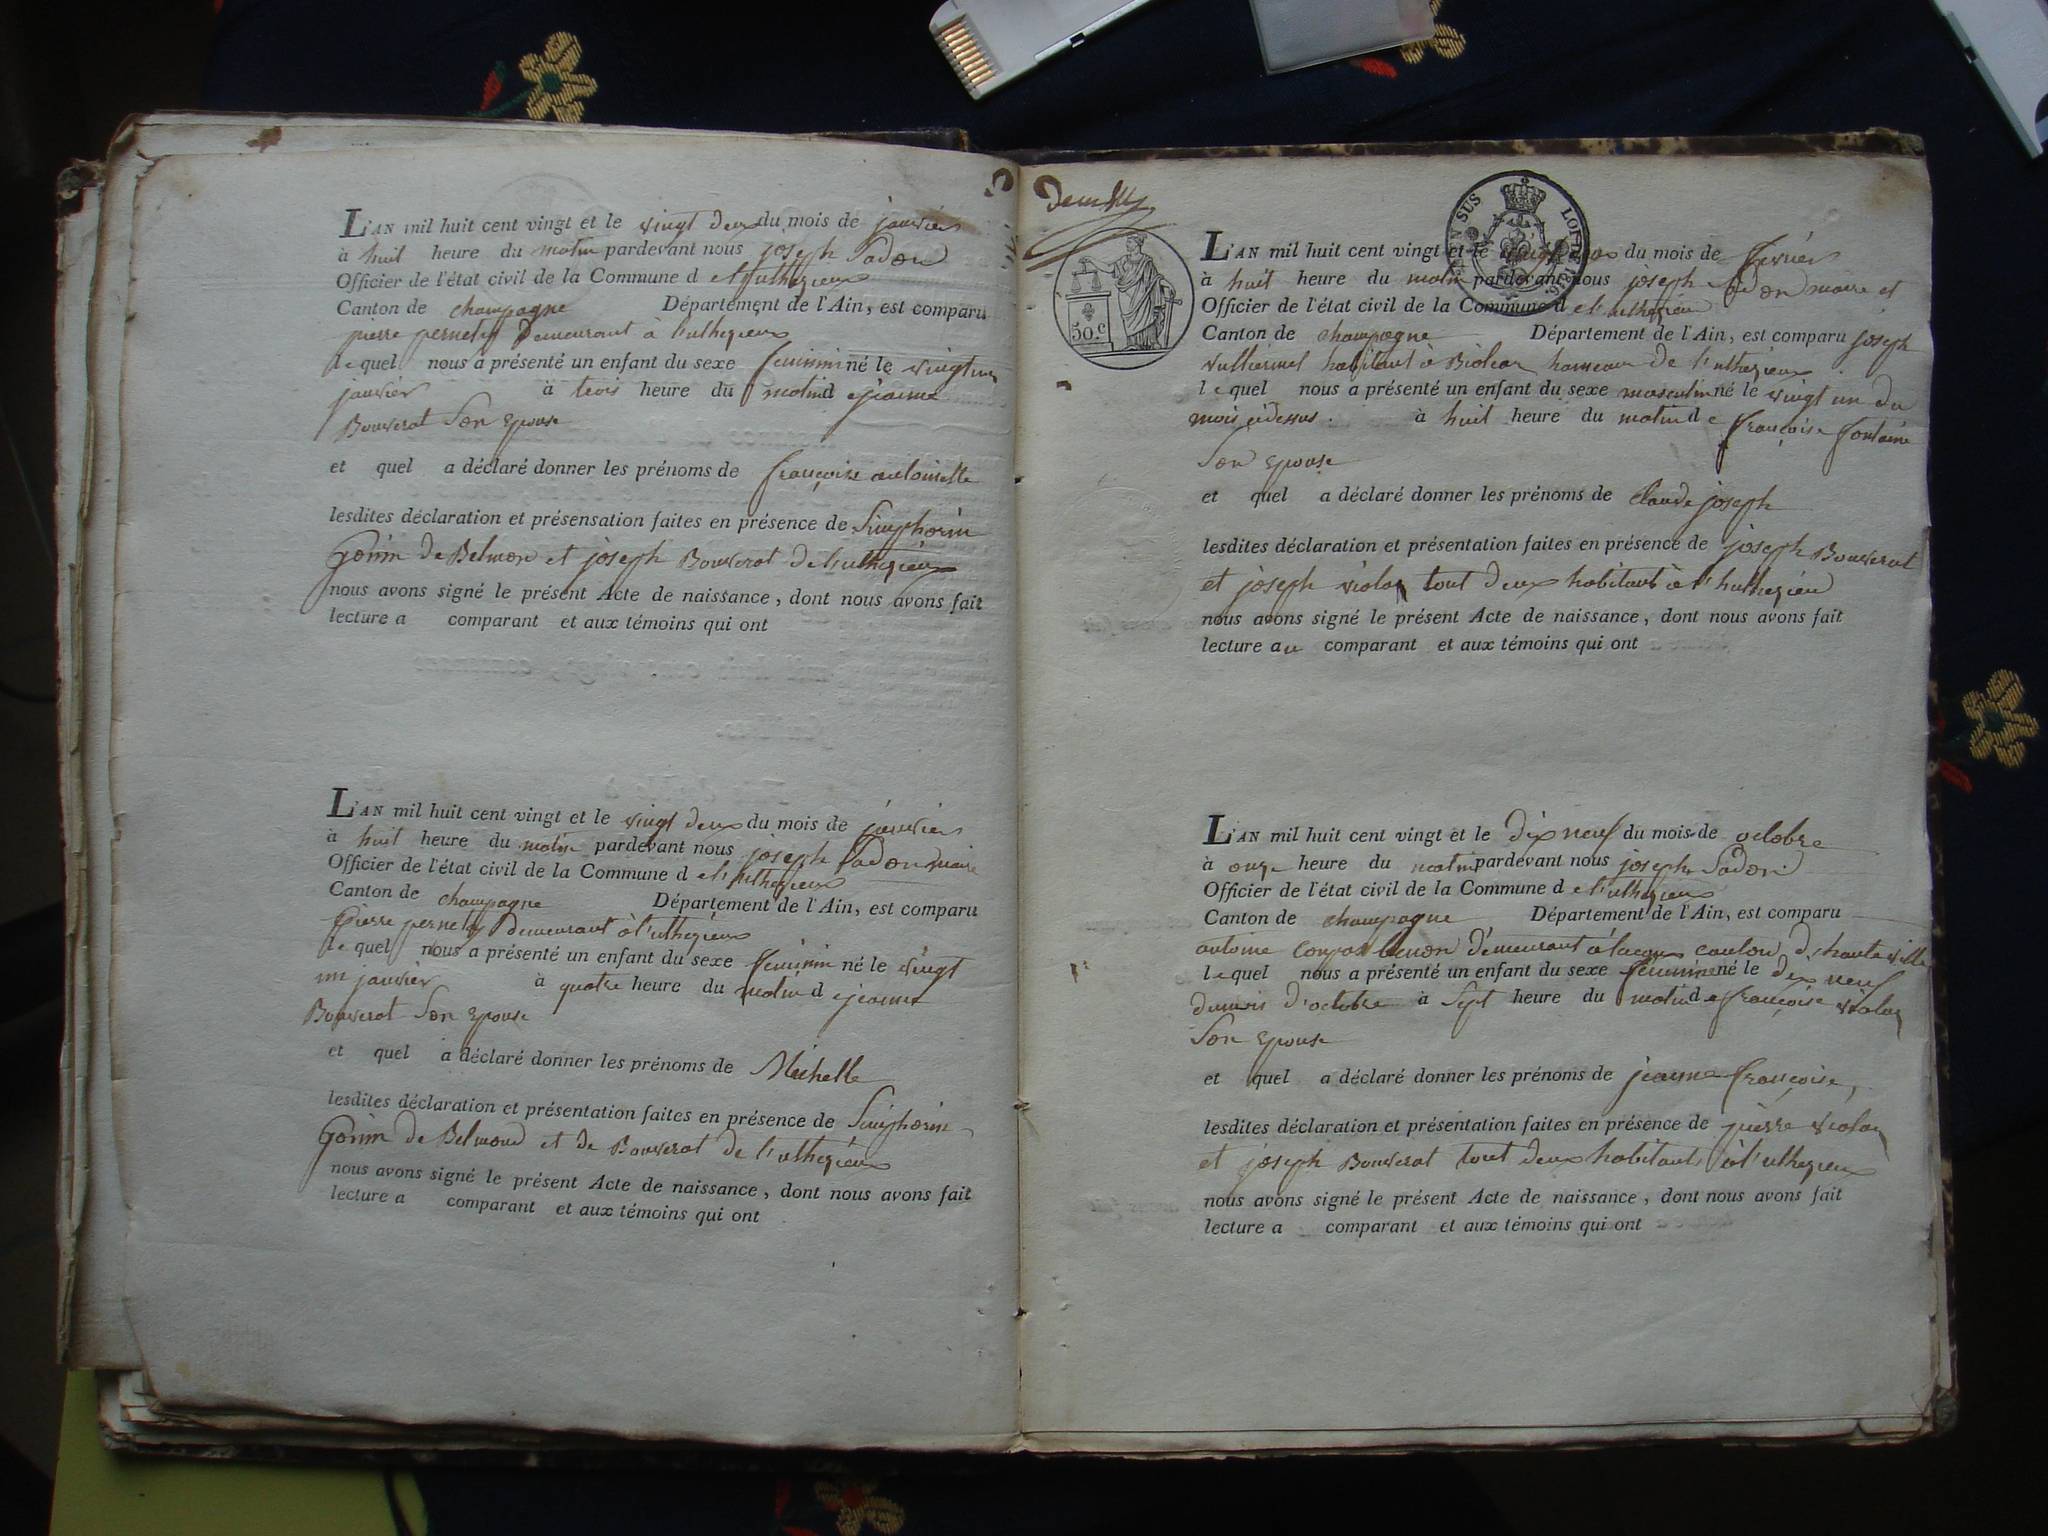 L'AN mil huit cent vingt et le vingt deux du mois de janvier
à huit heure du matin pardevant nous joseph Padon
Officier de l'état civil de la Commune de l'uthezieux
Canton de champagne Département de l'Ain, est comparu
pierre pernety Demeurant à l'uthezieux
lequel nous a présenté un enfant du sexe feminin né le vingt un
janvier à trois heure du matin de jeanne
Bouverat Son Epouse
et quel a déclaré donner les prénoms de françoise antoinette
lesdites déclaration et présensation faites en présence de Simphorin
Gonin de Belmon et joseph Bouverat de l'uthezieux
nous avons signé le présent Acte de naissance, dont nous avons fait
lecture a comparant et aux témoins qui ont
L'AN mil huit cent vingt et le vingt deux du mois de janvier
à huit heure du matin pardevant nous joseph Padon maire
Officier de l'état civil de la Commune de l'uthezieux
Canton de champagne Département de l'Ain, est comparu
Pierre pernety Demeurant à l'uthezieux
lequel nous a présenté un enfant du sexe feminin né le vingt
un janvier à quatre heure du matin de jeanne
Bouverat Son Epouse
et quel a déclaré donner les prénoms de Michelle
lesdites déclaration et présentation faites en présence de Simphorin
Gonin de Belmond et de Bouverat de l'uthezieux
nous avons signé le présent Acte de naissance, dont nous avons fait
lecture a comparant et aux témoins qui ont
50.c
L'AN mil huit cent vingt et le vingt du mois de fevrier
à huit heure du matin pardevant nous joseph Padon maire et
Officier de l'état civil de la Commune de l'uthezieu
Canton de champagne Département de l'Ain, est comparu joseph
vuthermet habitant à Bioleaz hameau de l'uthezieux
lequel nous a présenté un enfant du sexe masculin né le vingt un du
mois cidessus. à huit heure du matin de françoise fontaine
Son Epouse
et quel a déclaré donner les prénoms de claude joseph
lesdites déclaration et présentation faites en présence de joseph Bouverat
et joseph violaz tout deux habitants à l'huthezieu
nous avons signé le présent Acte de naissance, dont nous avons fait
lecture au comparant et aux témoins qui ont
L'AN mil huit cent vingt et le dix neuf du mois de octobre
à onze heure du matin pardevant nous joseph Padon
Officier de l'état civil de la Commune de l'uthezieux
Canton de champagne Département de l'Ain, est comparu
antoine demeurant à lacoux canton d'hauteville
lequel nous a présenté un enfant du sexe féminine né le dix neuf
du mois d'octobre à Sept heure du matin de françoise violaz
Son Epouse
et quel a déclaré donner les prénoms de jeanne françoise,
lesdites déclaration et présentation faites en présence de pierre violaz
et joseph Bouverat tout deux habitants à l'uthezieux
nous avons signé le présent Acte de naissance, dont nous avons fait
lecture a comparant et aux témoins qui ont